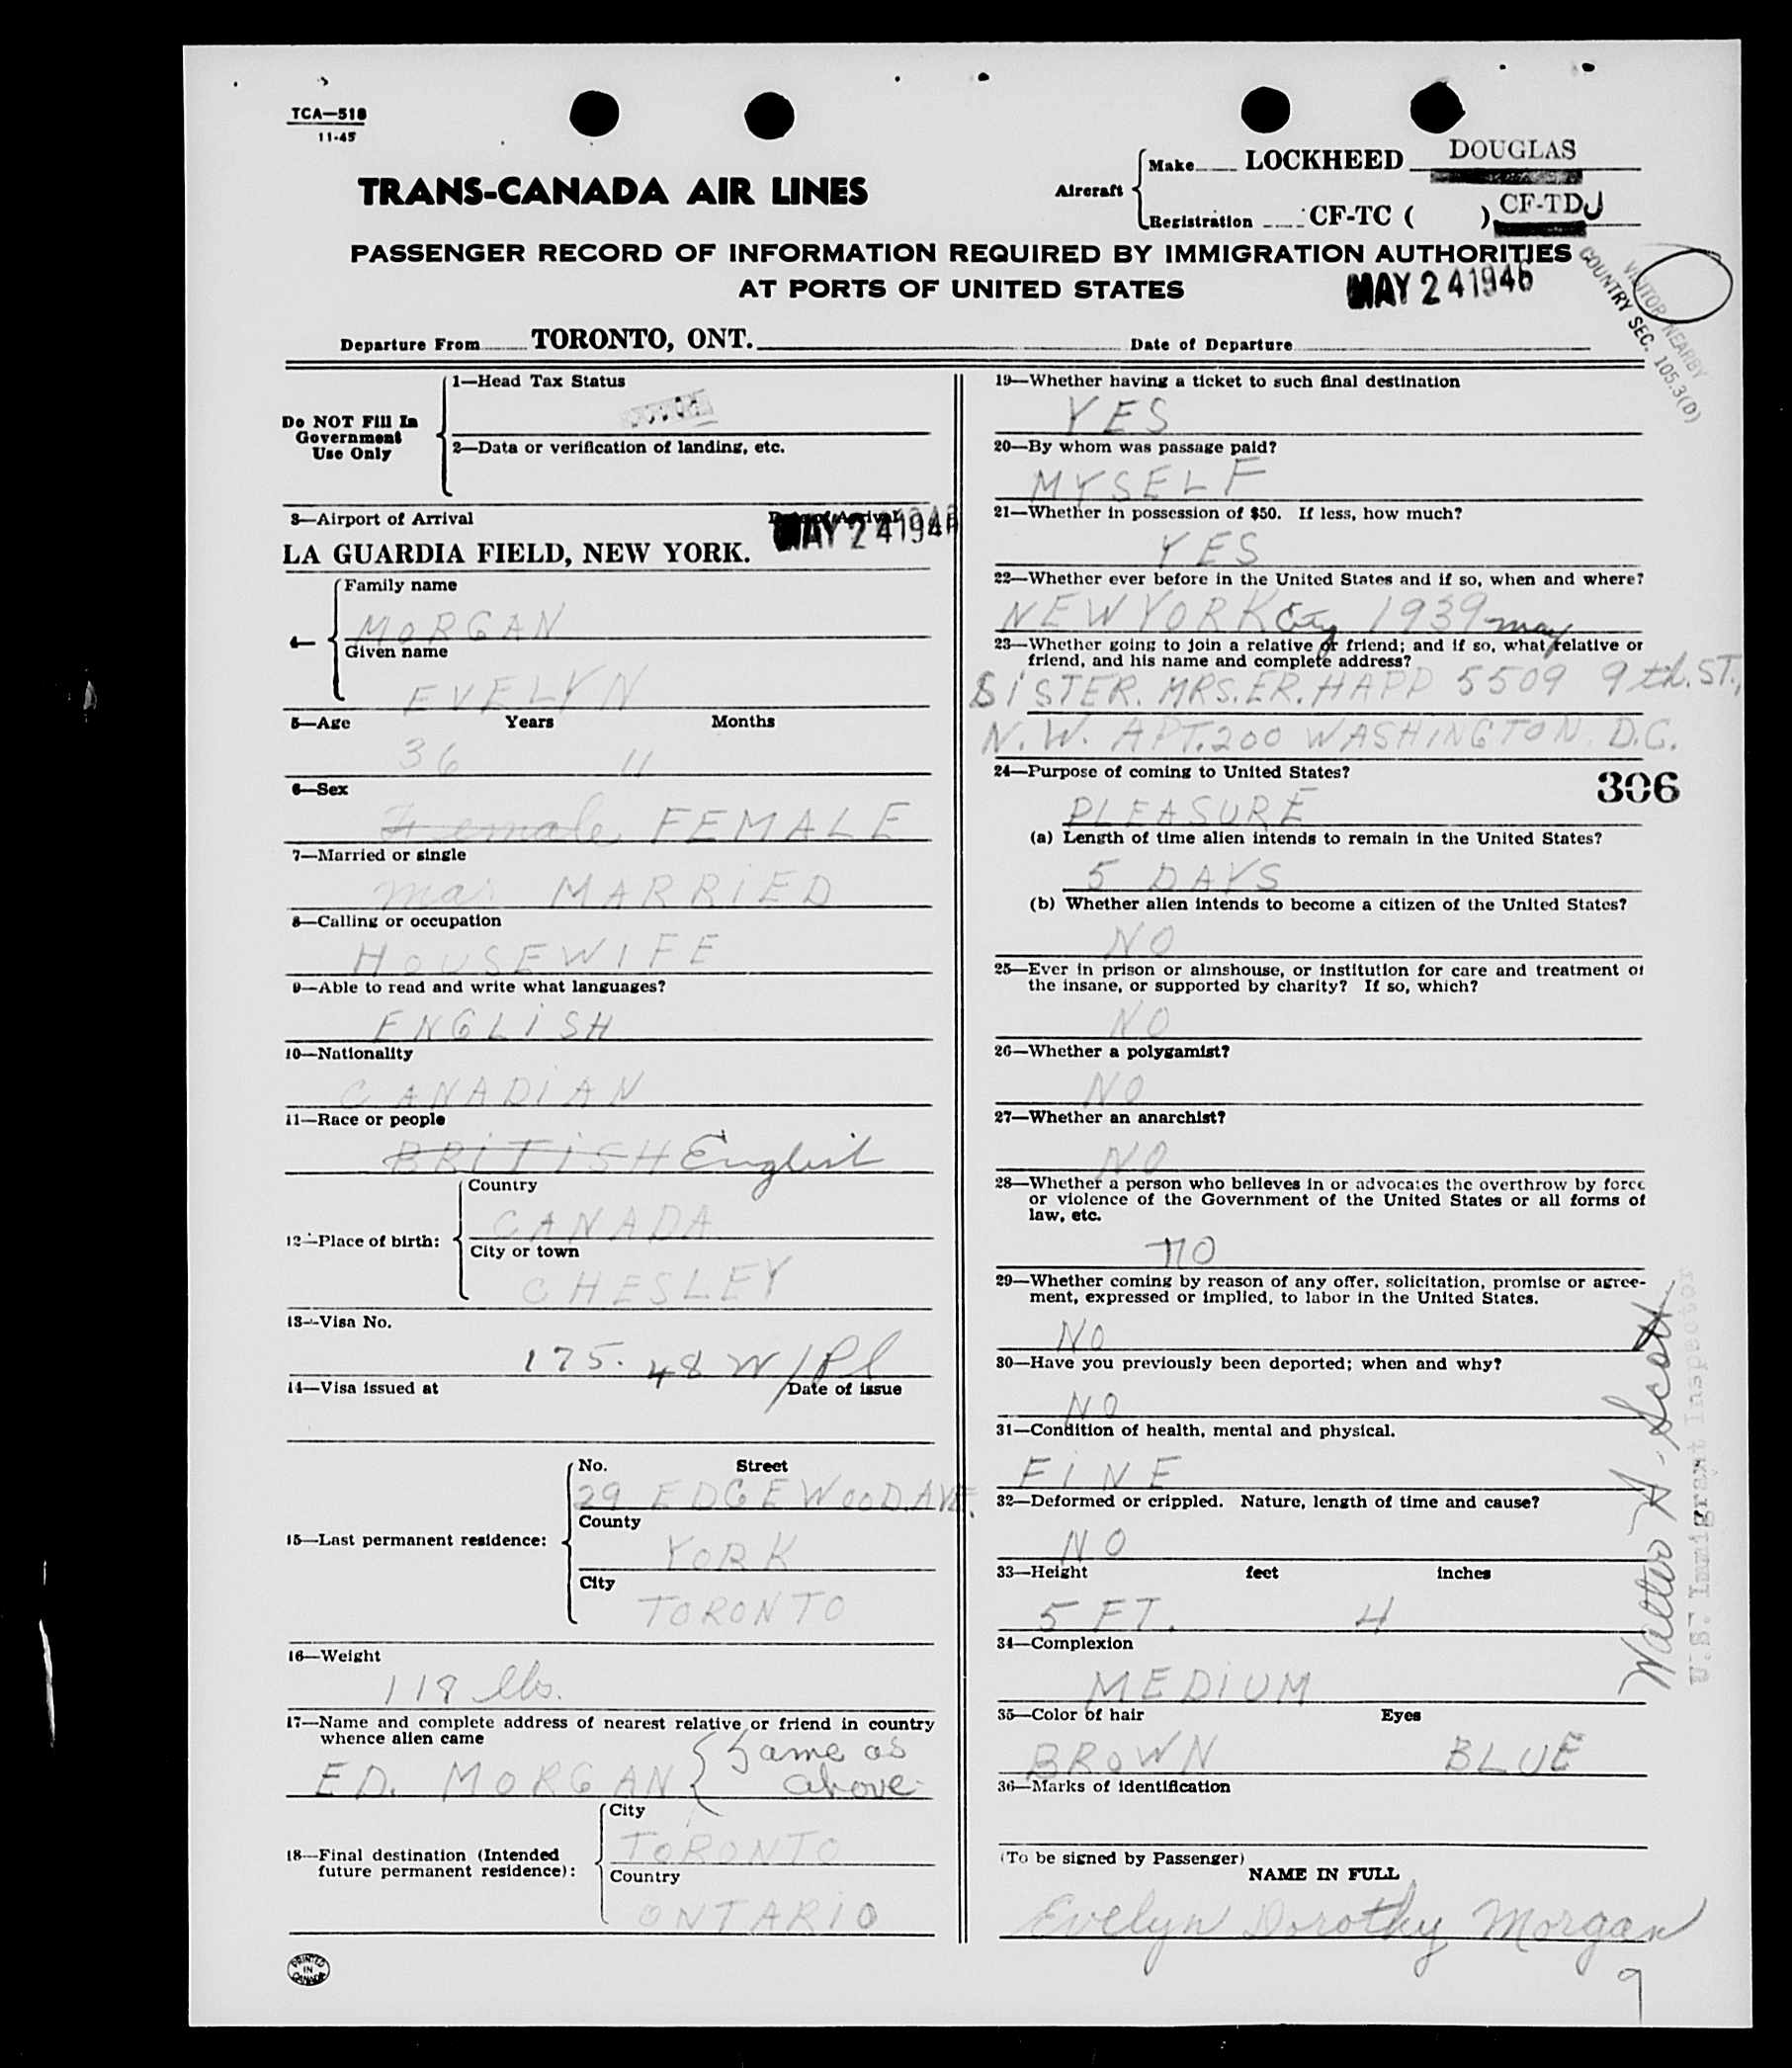 TCA—518
11-45
TRANS-CANADA AIR LINES
Aircraft
Make LOCKHEED DOUGLAS
Registration CF-TC ( ) CF-TDJ
PASSENGER RECORD OF INFORMATION REQUIRED BY IMMIGRATION AUTHORITIES
AT PORTS OF UNITED STATES
MAY 24 1946
VISITOR NEARBY
COUNTRY SEC. 105.3(D)
Departure From TORONTO, ONT. Date of Departure
Do NOT Fill In
Government
Use Only
1—Head Tax Status
2—Data or verification of landing, etc.
3—Airport of Arrival Date of Arrival
LA GUARDIA FIELD, NEW YORK. MAY 24 1946
4— Family name
MORGAN
Given name
EVELYN
5—Age Years Months
36 11
6—Sex
Female FEMALE
7—Married or single
mar MARRIED
8—Calling or occupation
HOUSEWIFE
9—Able to read and write what languages?
ENGLISH
10—Nationality
CANADIAN
11—Race or people
BRITISH English
12—Place of birth:
Country
CANADA
City or town
CHESLEY
13—Visa No.
175. 48 W/Pl
14—Visa issued at Date of issue
15—Last permanent residence:
No. Street
29 EDGEWOOD AVE.
County
YORK
City
TORONTO
16—Weight
118 lbs.
17—Name and complete address of nearest relative or friend in country
whence alien came
ED. MORGAN { Same as
above
18—Final destination (Intended
future permanent residence):
City
TORONTO
Country
ONTARIO
PRINTED
IN
CANADA
19—Whether having a ticket to such final destination
YES
20—By whom was passage paid?
MYSELF
21—Whether in possession of $50. If less, how much?
YES
22—Whether ever before in the United States and if so, when and where?
NEW YORK City 1939 may
23—Whether going to join a relative or friend; and if so, what relative or
friend, and his name and complete address?
SISTER. MRS. E.R. HAPP 5509 9th. ST.,
N.W. APT. 200 WASHINGTON D.C.
24—Purpose of coming to United States?
306
PLEASURE
(a) Length of time alien intends to remain in the United States?
5 DAYS
(b) Whether alien intends to become a citizen of the United States?
NO
25—Ever in prison or almshouse, or institution for care and treatment of
the insane, or supported by charity? If so, which?
NO
26—Whether a polygamist?
NO
27—Whether an anarchist?
NO
28—Whether a person who believes in or advocates the overthrow by force
or violence of the Government of the United States or all forms of
law, etc.
NO
29—Whether coming by reason of any offer, solicitation, promise or agree-
ment, expressed or implied, to labor in the United States.
NO
30—Have you previously been deported; when and why?
NO
31—Condition of health, mental and physical.
FINE
32—Deformed or crippled. Nature, length of time and cause?
NO
33—Height feet inches
5 FT. 4
34—Complexion
MEDIUM
35—Color of hair Eyes
BROWN BLUE
36—Marks of identification
(To be signed by Passenger)
NAME IN FULL
Evelyn Dorothy Morgan
9
Walter A. Scott
U.S. Immigrant Inspector